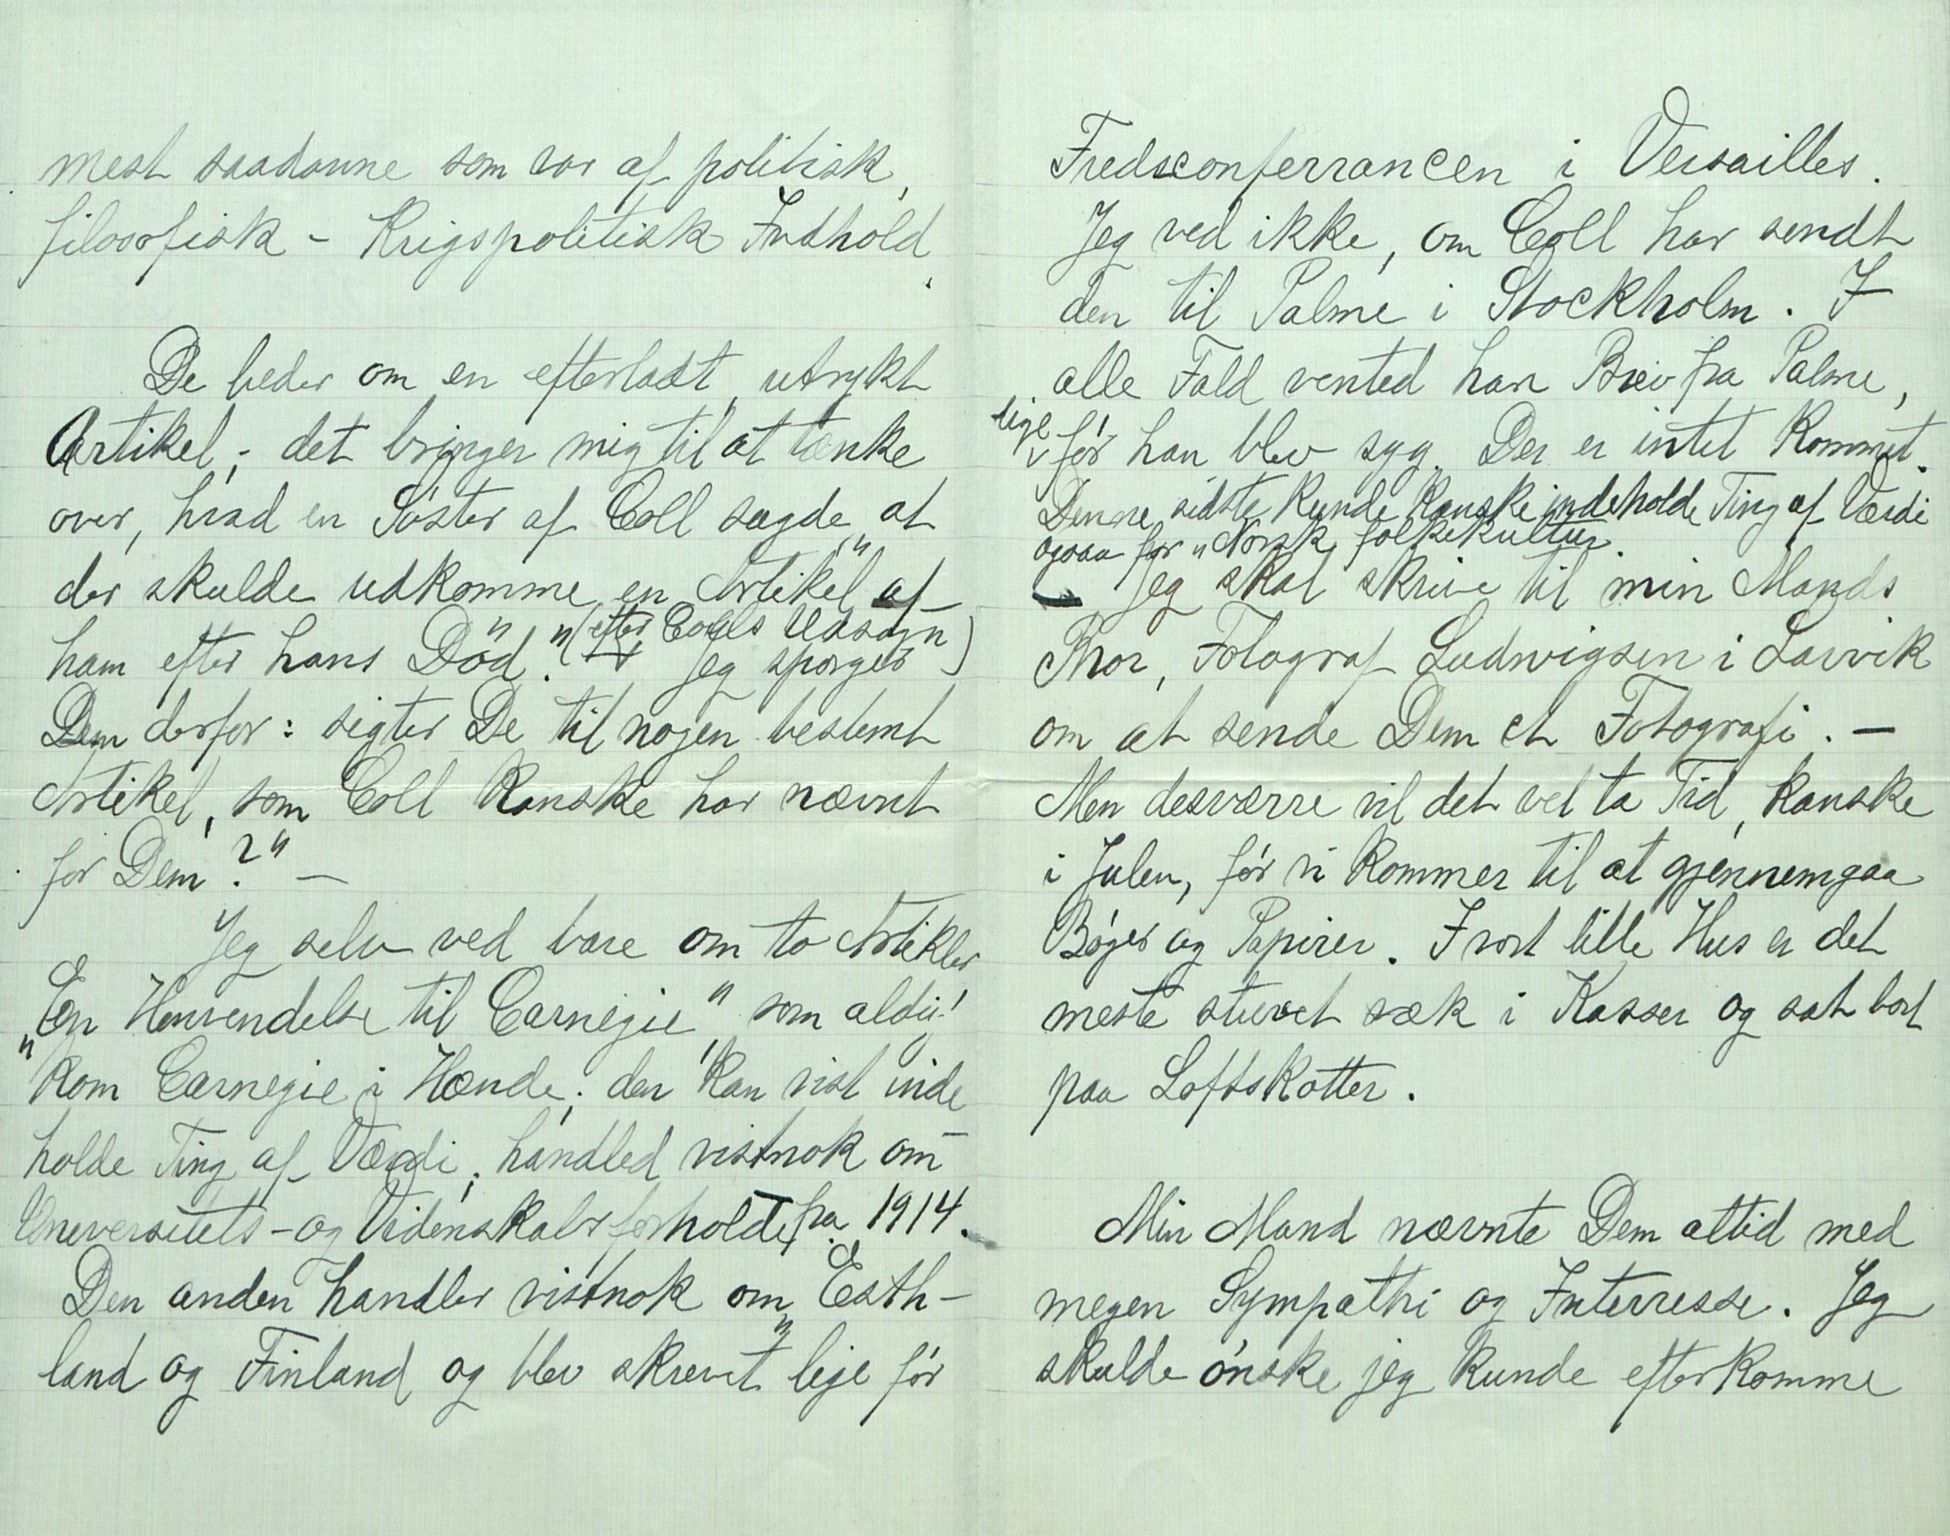 mest saadanne som var af politisk,
filosofisk - Krigspolitisk Indhold.
De beder om en efterladt, utrykt
Artikel; det bringer mig til at tænke
over, hvad en Søster af Coll sagde, "at
der skulde udkomme en Artikel af
ham efter hans Død." (efter Colls Udsagn)
Jeg spørger
Dem derfor: sigter De til nogen bestemt
Artikel, som Coll kanske har nævnt
for Dem?" —
Jeg selv ved bare om to Artikler
"En Henvendelse til Carnegie", som aldri
kom Carnegie i Hænde; den kan vist inde
holde Ting af Værdi, handled vistnok om
Universitets- og Videnskabsforholde fra 1914.
Den anden handler vistnok om "Esth-
land og Finland og blev skrevet lige før
Fredsconferrancen i Versailles.
Jeg ved ikke, om Coll har sendt
den til Palme i Stockholm. I
alle Fald vented han Brev fra Palme,
lige før han blev syg. Der er intet kommet.
Denne sidste kunde kanske indeholde Ting af Værdi
ogsaa for "Norsk folkekultur".
Jeg skal skrive til min Mands
Bror, Fotograf Ludwigsen i Larvik
om at sende Dem et Fotografi. —
Men desværre vil det vel ta Tid, kanske
i Julen, før vi kommer til at gjennemgaa
Bøger og Papirer. I vort lille Hus er det
meste stuvet væk i Kasser og sat bort
paa Loftskotter.
Min Mand nævnte Dem altid med
megen Sympathi og Interresse. Jeg
skulde ønske jeg kunde efterkomme